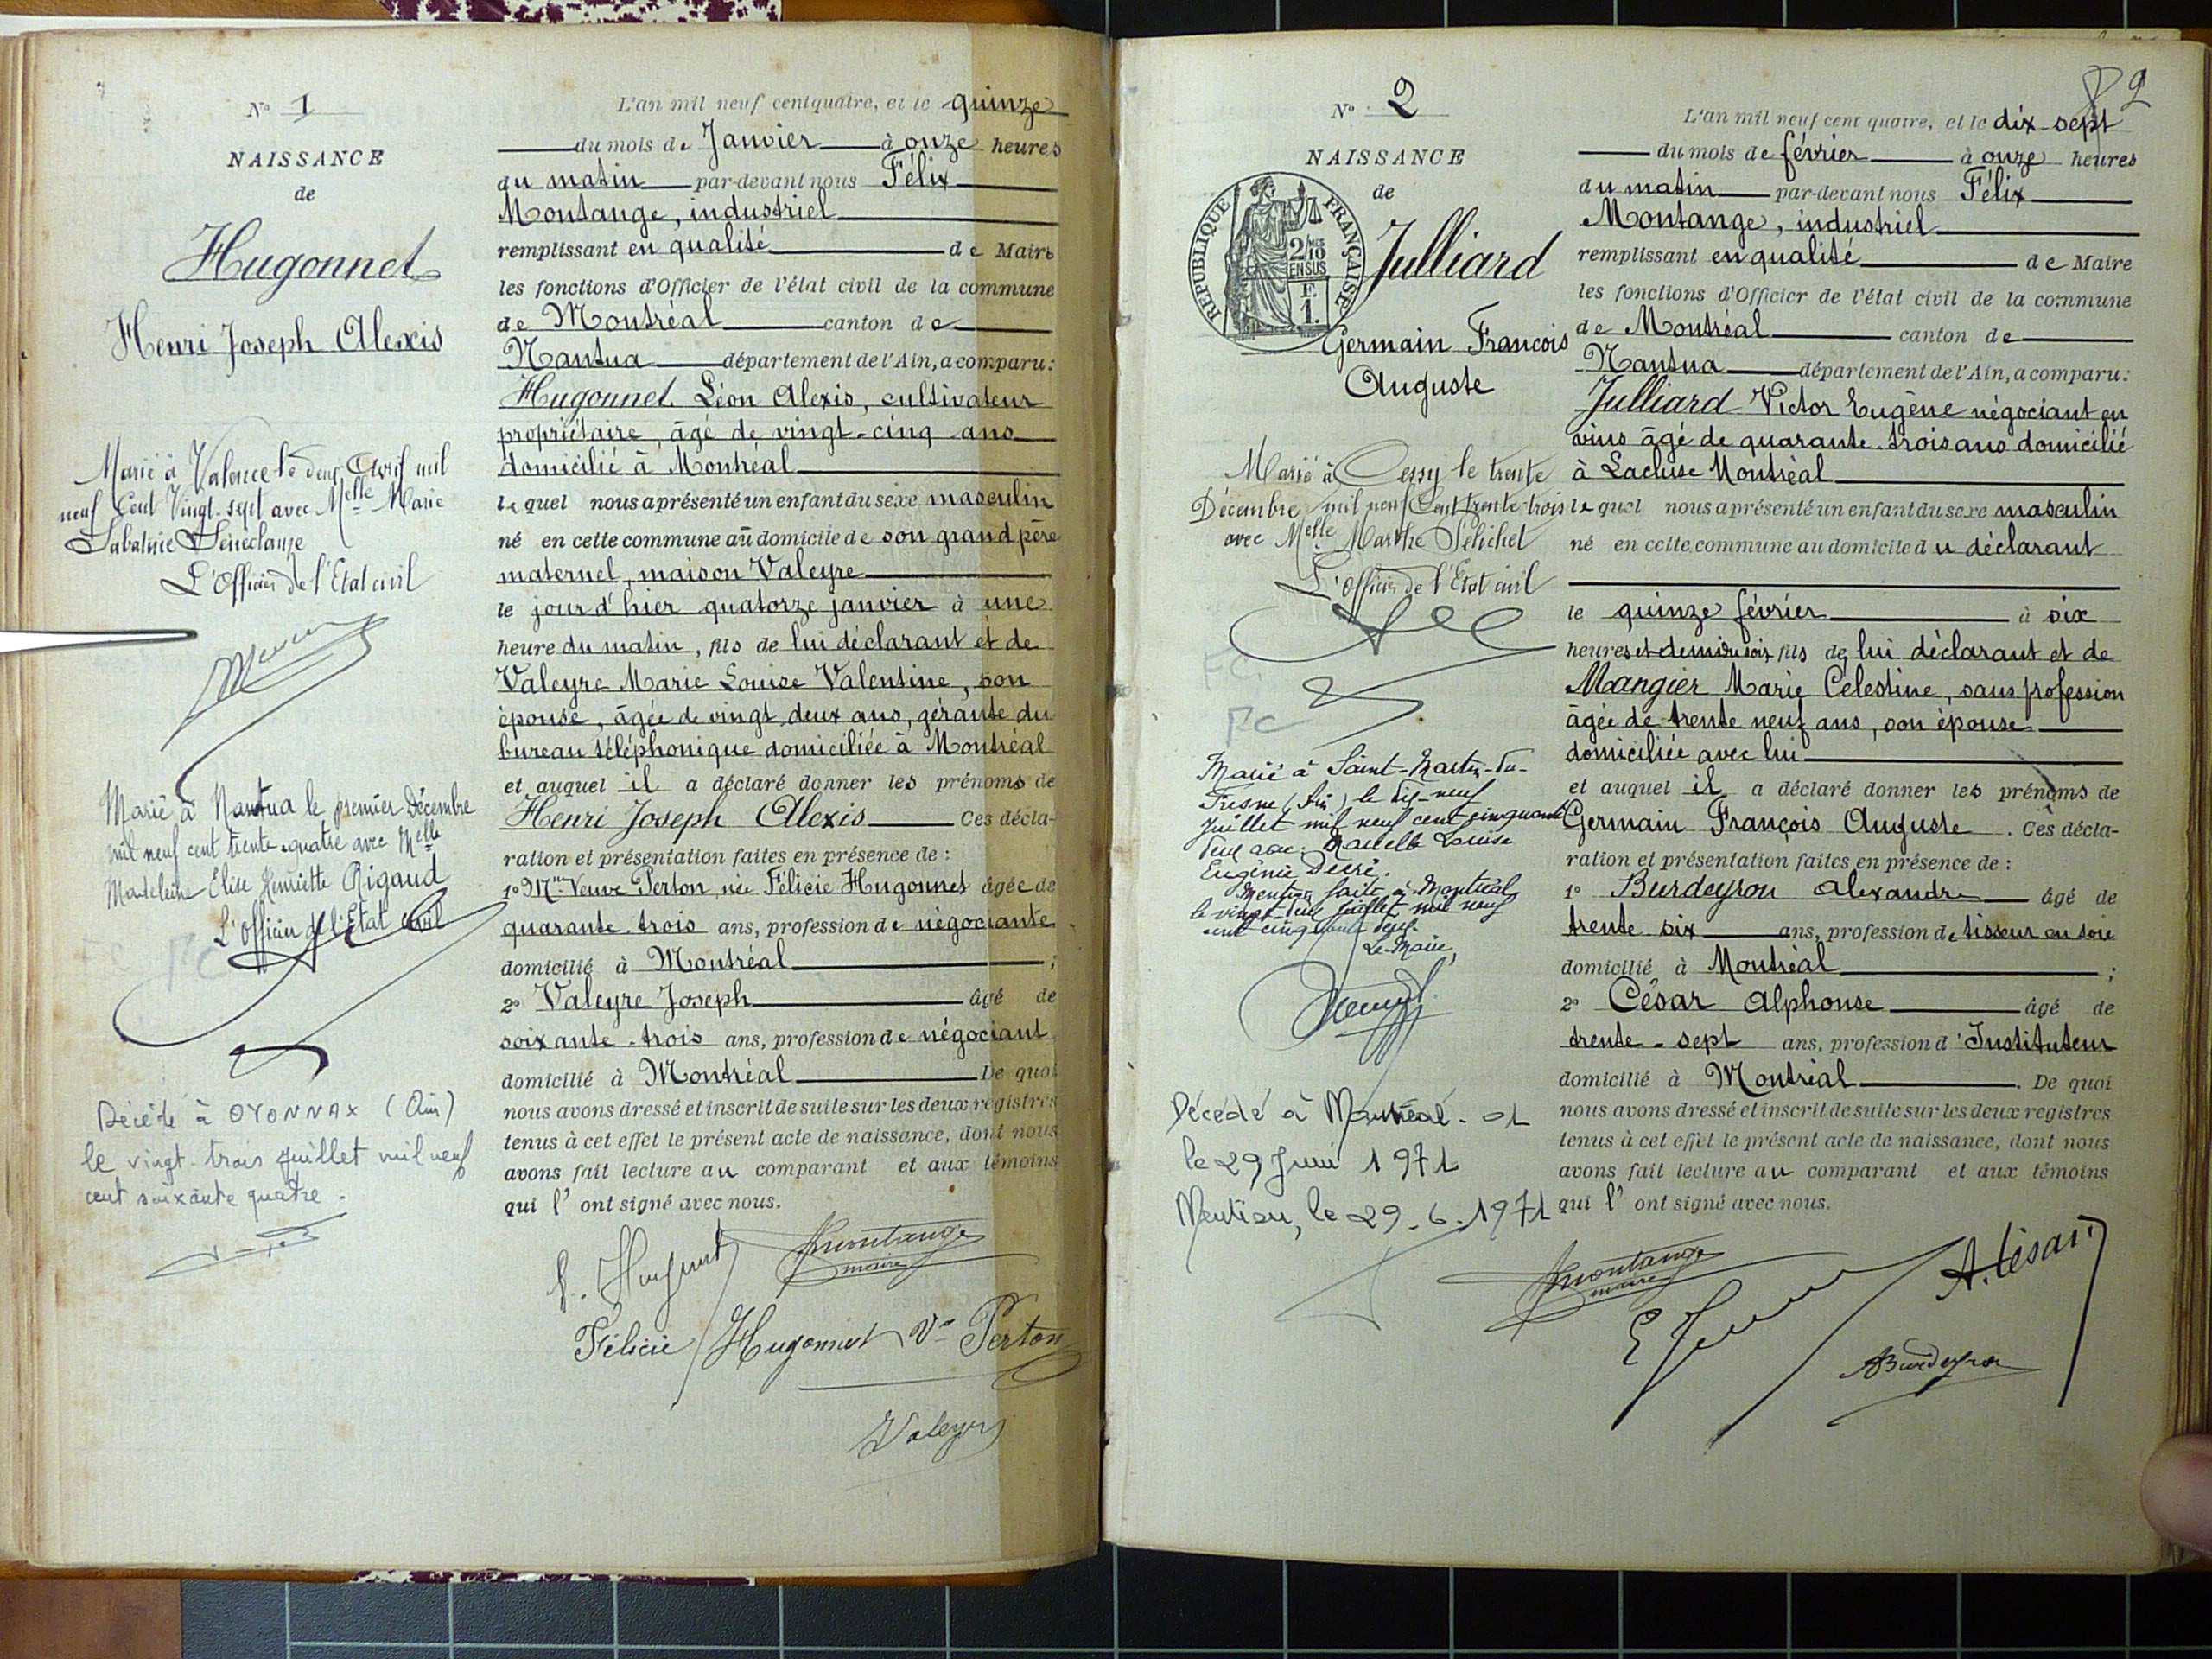 N° 1
NAISSANCE
de
Hugonnet
Henri Joseph Alexis
Marié à Valence le deux Avril mil
neuf Cent Vingt-sept avec Melle Marie
L'Officier de l'Etat civil
Marié à Nantua le premier Décembre
mil neuf cent trente-quatre avec Melle
Madeleine Elise Henriette Rigaud
L'Officier de l'Etat civil
Décédé à OYONNAX (Ain)
le vingt-trois juillet mil neuf
cent soixante quatre.
L'an mil neuf cent quatre, et le quinze
du mois de Janvier à onze heures
du matin par-devant nous Félix
Montange, industriel
remplissant en qualité de Maire
les fonctions d'Officier de l'état civil de la commune
de Montréal canton de
Nantua département de l'Ain, a comparu:
Hugonnet Léon Alexis, cultivateur
propriétaire, âgé de vingt-cinq ans
domicilié à Montréal
lequel nous a présenté un enfant du sexe masculin
né en cette commune au domicile de son grand père
maternel, maison Valeyre
le jour d'hier quatorze janvier à une
heure du matin, fils de lui déclarant et de
Valeyre Marie Louise Valentine, son
épouse, âgée de vingt deux ans, gérante du
bureau téléphonique domiciliée à Montréal
et auquel il a déclaré donner les prénoms de
Henri Joseph Alexis Ces décla-
ration et présentation faites en présence de :
1° Mme Veuve Perton, née Félicie Hugonnet âgée de
quarante-trois ans, profession de négociante
domicilié à Montréal ;
2° Valeyre Joseph âgé de
soixante-trois ans, profession de négociant
domicilié à Montréal De quoi
nous avons dressé et inscrit de suite sur les deux registres
tenus à cet effet le présent acte de naissance, dont nous
avons fait lecture au comparant et aux témoins
qui l'ont signé avec nous.
Montange
maire
Félicie Hugonnet Ve Perton
Valeyre
2
N° 2
NAISSANCE
de
REPUBLIQUE FRANÇAISE
2/10
EN SUS
F.
1.
Julliard
Germain François
Auguste
Marié à Cessy le trente
Décembre mil neuf Cent trente-trois
avec Melle Marthe Pélichet
L'Officier de l'Etat civil
Marié à Saint-Martin-du-
Fresne (Ain) le dix-neuf
Juillet mil neuf cent cinquante
deux avec Marcelle Louise
Eugénie
Mention faite à Montréal
le vingt-deux juillet mil neuf
cent cinquante deux.
Le Maire,
Décédé à Montréal - 01
le 29 Juin 1971
Mention, le 29-6-1971
L'an mil neuf cent quatre, et le dix-sept
du mois de février à onze heures
du matin par-devant nous Félix
Montange, industriel
remplissant en qualité de Maire
les fonctions d'Officier de l'état civil de la commune
de Montréal canton de
Nantua département de l'Ain, a comparu:
Julliard Victor Eugène négociant en
vins âgé de quarante-trois ans domicilié
à Lacluse Montréal
lequel nous a présenté un enfant du sexe masculin
né en cette commune au domicile du déclarant
le quinze février à six
heures et demie du soir, fils de lui déclarant et de
Mangier Marie Celestine, sans profession
âgée de trente neuf ans, son épouse
domiciliée avec lui
et auquel il a déclaré donner les prénoms de
Germain François Auguste. Ces décla-
ration et présentation faites en présence de :
1° Burdeyron Alexandre âgé de
trente-six ans, profession de tisseur en soie
domicilié à Montréal ;
2° César Alphonse âgé de
trente-sept ans, profession d'Instituteur
domicilié à Montréal. De quoi
nous avons dressé et inscrit de suite sur les deux registres
tenus à cet effet le présent acte de naissance, dont nous
avons fait lecture au comparant et aux témoins
qui l'ont signé avec nous.
Montange
maire
A. César
ABurdeyron